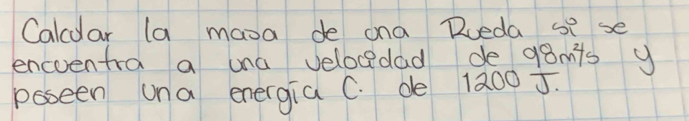 Calcular la masa de una Rueda si se
encuentra a una velocidad de 98m/s y
poseen una energía C. de 1200 J.